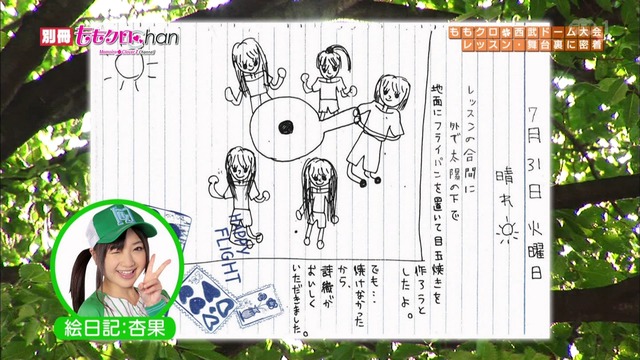 別冊ももクロChan
Momoiro Clover Z Channel
ももクロ夏の西武ドーム大会
レッスン・舞台裏に密着
7月31日 火曜日
晴れ
レッスンの合間に
外で太陽の下で
地面にフライパンを置いて目玉焼きを
作ろうと
したよ。
でも…
焼けなかった
から、
詩織が
おいしく
いただきました。
HAPPY
FLIGHT
絵日記:杏果